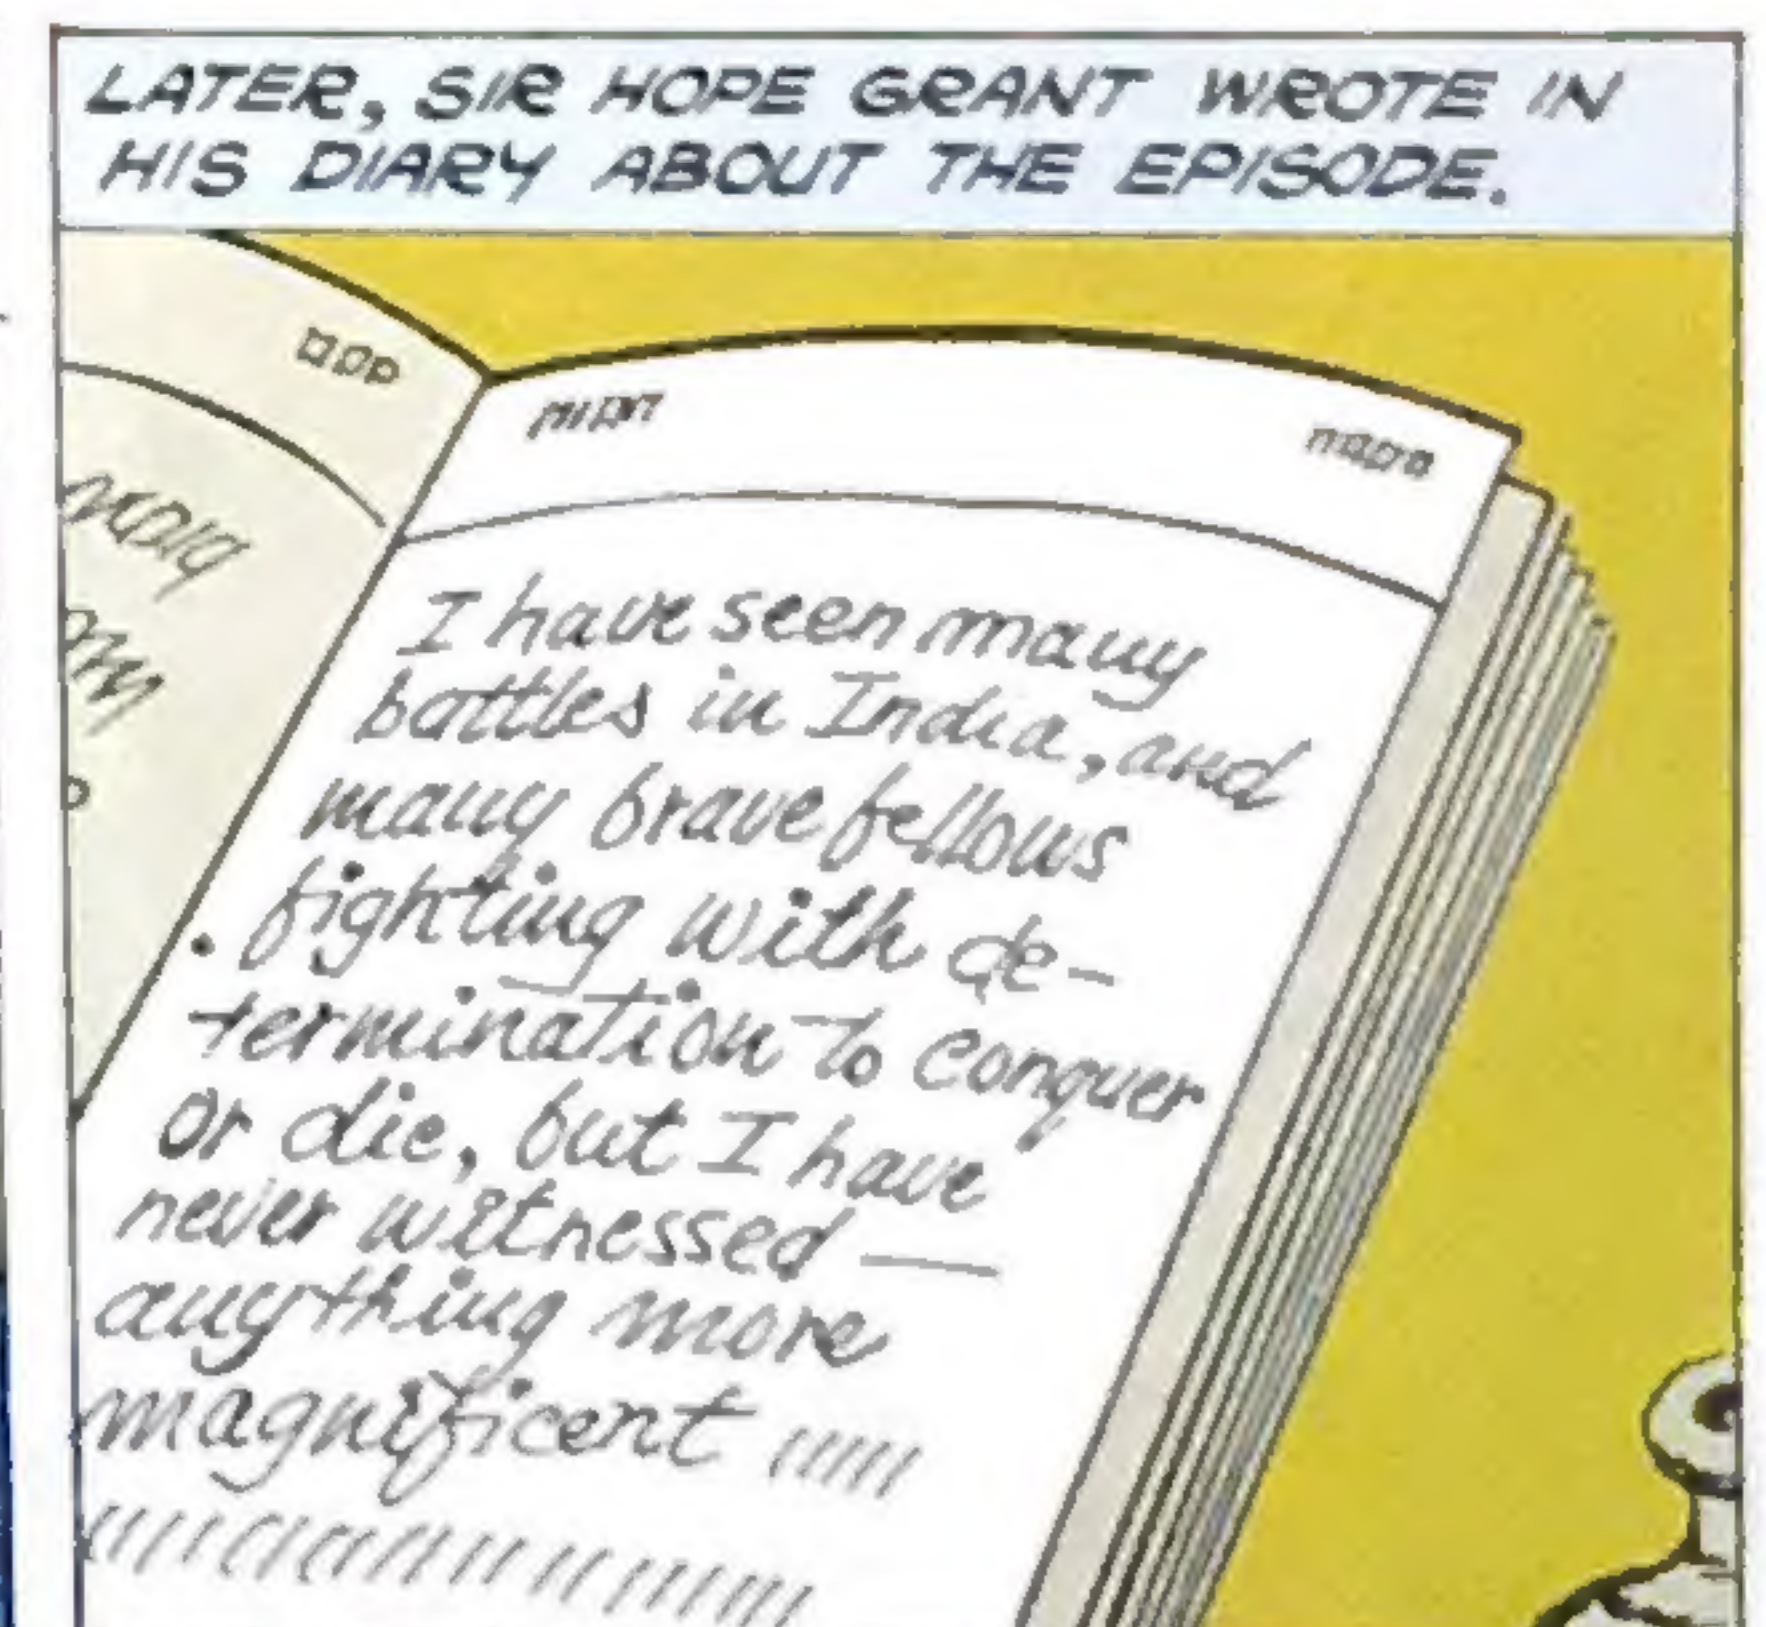 LATER, SIR HOPE GRANT WROTE IN
HIS DIARY ABOUT THE EPISODE.
I have seen many
battles in India, and
many brave fellows
fighting with de-
termination to conquer
or die, but I have
never witnessed —
anything more
magnificent